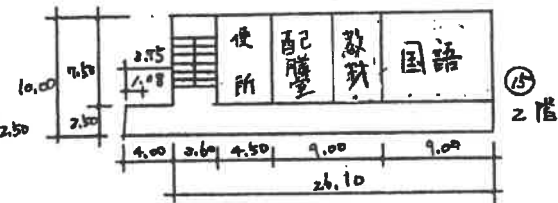 便所
配膳室
教材
国語
⑮
2階
10.00
7.50
2.50
2.50
3.75
1.08
4.00
3.60
4.50
9.00
9.00
26.10